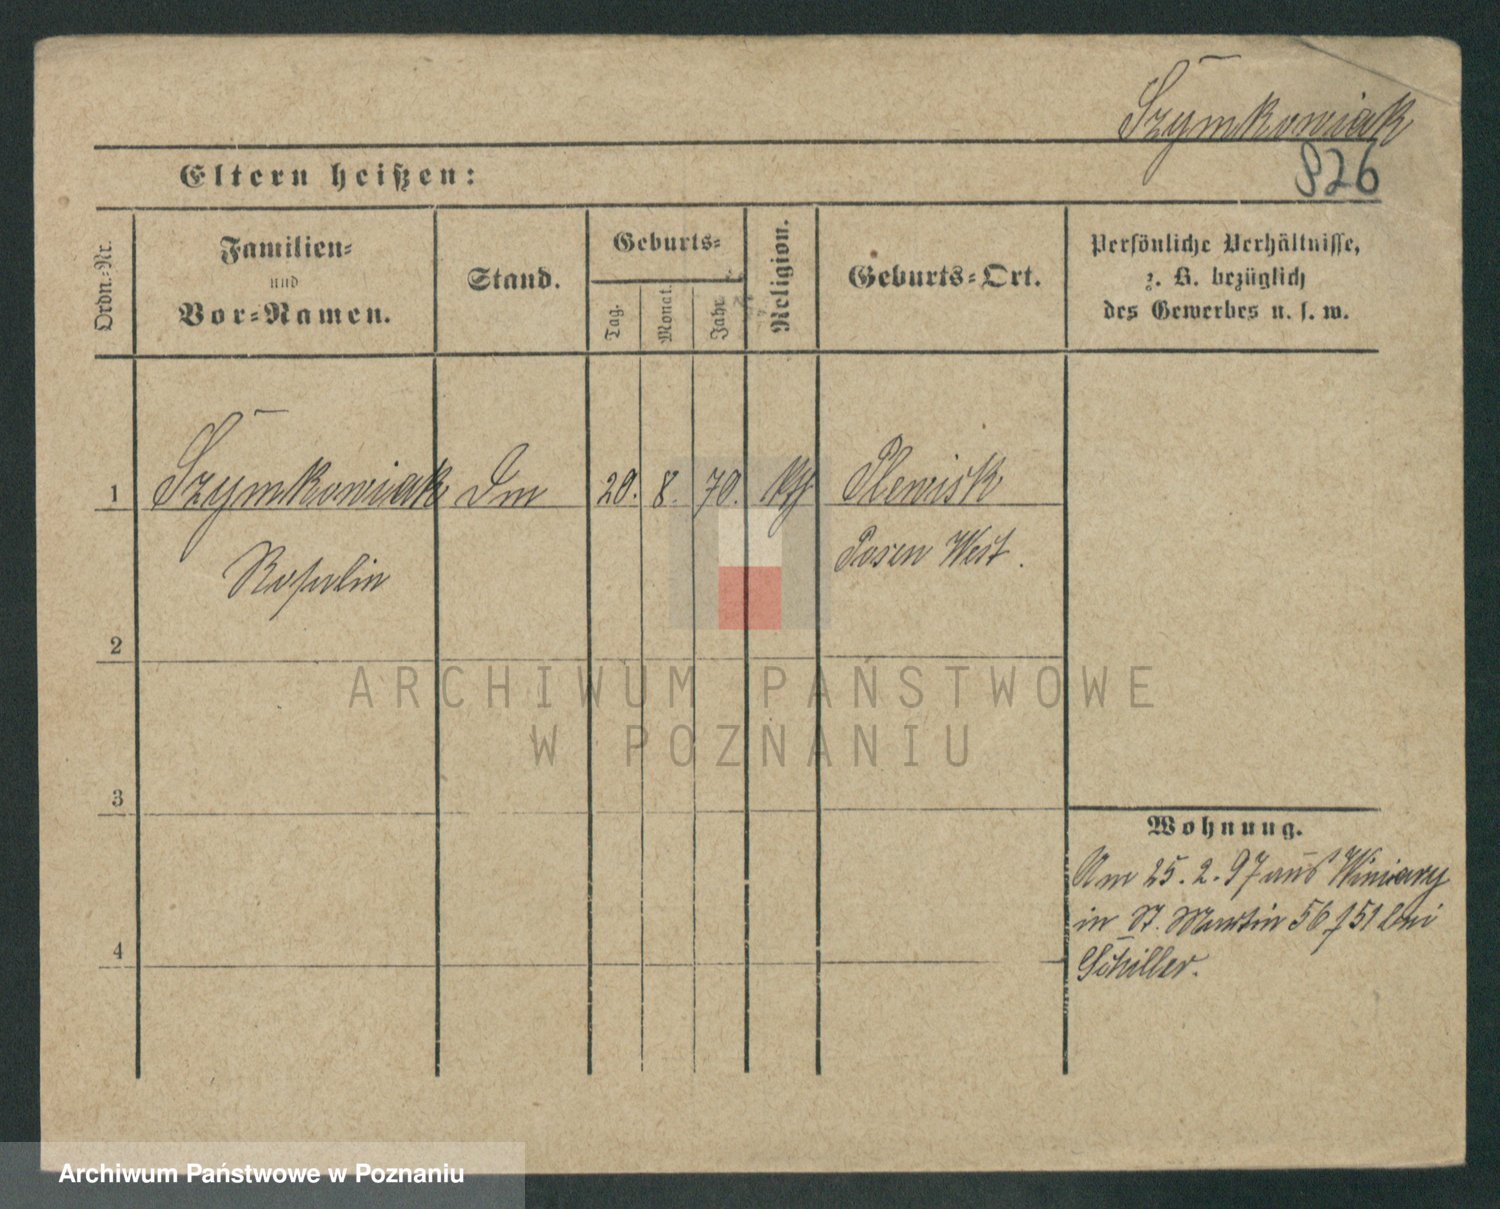 Szymkowiak
826
Eltern heißen:
Ordn.-Nr.
Familien-
und
Vor-Namen.
Stand.
Geburts-
Tag.
Monat.
Jahr
Religion.
Geburts-Ort.
Persönliche Verhältnisse,
z. B. bezüglich
des Gewerbes u. s. w.
1 Szymkowiak 20. 8. 70. Plewisk
Rosalin Posen West.
2
3
4
Wohnung.
Am 25. 2. 97 aus Winiary
in St. Martin 56 f 51 bei
Schiller.
ARCHIWUM PAŃSTWOWE
W POZNANIU
Archiwum Państwowe w Poznaniu